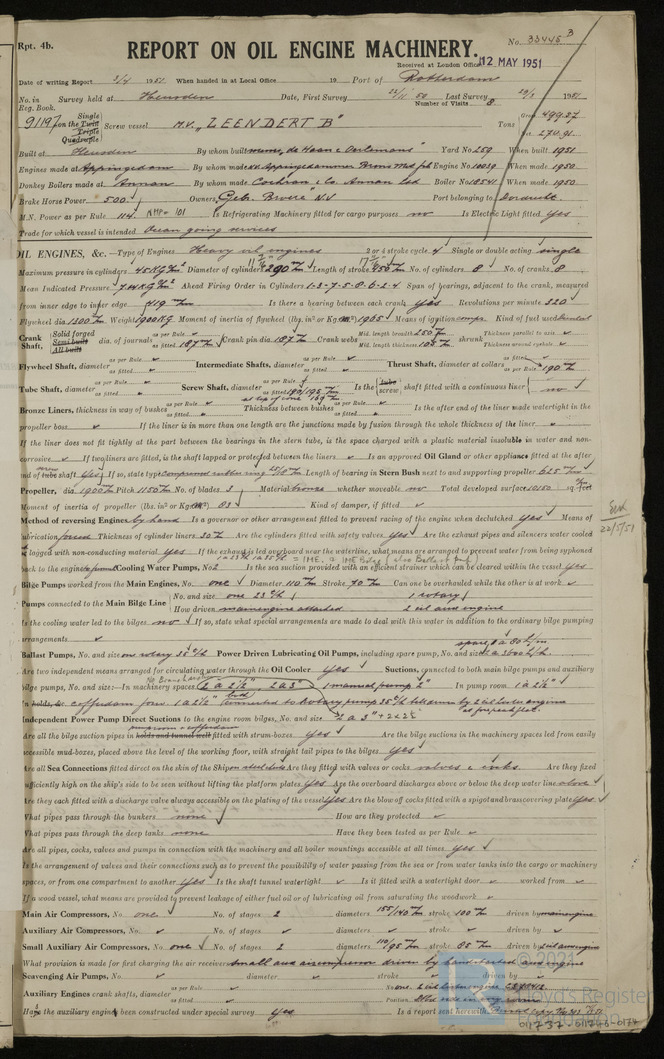 Rpt. 4b.
REPORT ON OIL ENGINE MACHINERY.
No. 33448 B
Received at London Office 12 MAY 1951
Date of writing Report 3/4 1951 When handed in at Local Office 19 Port of Rotterdam
No. in Reg. Book. Survey held at Heusden Date, First Survey 22/11 50 Last Survey 1951
Number of Visits 8
91197 on the Single Twin Triple Quadruple Screw vessel M.V. "LEENDERT B" Tons Gross 499.27
Net 274.91
Built at Heusden By whom built de Haan & Oerlemans Yard No 259 When built 1951
Engines made at Appingedam By whom made N.V. Appingedammer Brons Mot. fab Engine No. 10039 When made 1950
Donkey Boilers made at Annan By whom made Cochran & Co. Annan Ltd Boiler No. 10541 When made 1950
Brake Horse Power 500 Owners Gebr. Broere N.V Port belonging to Dordrecht
M.N. Power as per Rule 114 NHP= 101 Is Refrigerating Machinery fitted for cargo purposes no Is Electric Light fitted Yes
Trade for which vessel is intended Ocean going services
OIL ENGINES, &c.—Type of Engines Heavy oil engines 2 or 4 stroke cycle 4 Single or double acting single
Maximum pressure in cylinders 45 KG/cm² Diameter of cylinders 290 mm Length of stroke 450 mm No. of cylinders 8 No. of cranks 8
Mean Indicated Pressure 7.14 KG/cm² Ahead Firing Order in Cylinders 1-3-7-5-8-6-2-4 Span of bearings, adjacent to the crank, measured
from inner edge to inner edge 419 mm Is there a bearing between each crank Yes Revolutions per minute 320
Flywheel dia. 1300 mm Weight 1900 KG Moment of inertia of flywheel (lbs. in² or Kg. cm²) 1965 Means of ignition compr. Kind of fuel used
Crank Shaft, Solid forged Semi built All built dia. of journals as per Rule as fitted 187 mm Crank pin dia. 187 mm Crank webs Mid. length breadth 250 mm Mid. length thickness 105 mm shrunk Thickness parallel to axis Thickness around eyehole
Flywheel Shaft, diameter as per Rule as fitted Intermediate Shafts, diameter as per Rule as fitted Thrust Shaft, diameter at collars as fitted as per Rule 190 mm
Tube Shaft, diameter as per Rule as fitted Screw Shaft, diameter as per Rule as fitted 190/195 mm Is the tube screw shaft fitted with a continuous liner no
Bronze Liners, thickness in way of bushes as per Rule as fitted Thickness between bushes as per Rule as fitted Is the after end of the liner made watertight in the
propeller boss If the liner is in more than one length are the junctions made by fusion through the whole thickness of the liner
If the liner does not fit tightly at the part between the bearings in the stern tube, is the space charged with a plastic material insoluble in water and non-
corrosive If two liners are fitted, is the shaft lapped or protected between the liners Is an approved Oil Gland or other appliance fitted at the after
end of tube shaft Yes If so, state type Length of bearing in Stern Bush next to and supporting propeller 625 mm
Propeller, dia. 1900 mm Pitch 1150 mm No. of blades 3 Material bronze whether moveable no Total developed surface 10150 sq. feet
Moment of inertia of propeller (lbs. in² or Kg. cm²) 83 Kind of damper, if fitted
Method of reversing Engines by hand Is a governor or other arrangement fitted to prevent racing of the engine when declutched yes Means of
lubrication forced Thickness of cylinder liners 30 mm Are the cylinders fitted with safety valves Yes Are the exhaust pipes and silencers water cooled
or lagged with non-conducting material yes If the exhaust is led overboard near the waterline, what means are arranged to prevent water from being syphoned
back to the engine Cooling Water Pumps, No. 2 Is the sea suction provided with an efficient strainer which can be cleared within the vessel yes
Bilge Pumps worked from the Main Engines, No. one Diameter 110 mm Stroke 70 mm Can one be overhauled while the other is at work
Pumps connected to the Main Bilge Line No. and size one 23 t/h 1 rotary
How driven main engine attached 2 oil aux engine
Is the cooling water led to the bilges no If so, state what special arrangements are made to deal with this water in addition to the ordinary bilge pumping
arrangements
Ballast Pumps, No. and size one rotary 35 t/h Power Driven Lubricating Oil Pumps, including spare pump, No. and size
Are two independent means arranged for circulating water through the Oil Cooler Yes Suctions, connected to both main bilge pumps and auxiliary
bilge pumps, No. and size:—In machinery spaces 2 à 2½" 2 à 3" 1 manual pump 2" In pump room 1 à 2½"
In holds, &c. cofferdam forw. 1 à 2½" connected to Rotary pump 35 t/h
Independent Power Pump Direct Suctions to the engine room bilges, No. and size 2 à 3"
Are all the bilge suction pipes in holds and tunnel well fitted with strum-boxes yes Are the bilge suctions in the machinery spaces led from easily
accessible mud-boxes, placed above the level of the working floor, with straight tail pipes to the bilges Yes
Are all Sea Connections fitted direct on the skin of the Ship Are they fitted with valves or cocks valves & cocks Are they fixed
sufficiently high on the ship's side to be seen without lifting the platform plates Yes Are the overboard discharges above or below the deep water line above
Are they each fitted with a discharge valve always accessible on the plating of the vessel Yes Are the blow off cocks fitted with a spigot and brass covering plate Yes
What pipes pass through the bunkers none How are they protected
What pipes pass through the deep tanks none Have they been tested as per Rule
Are all pipes, cocks, valves and pumps in connection with the machinery and all boiler mountings accessible at all times yes
Is the arrangement of valves and their connections such as to prevent the possibility of water passing from the sea or from water tanks into the cargo or machinery
spaces, or from one compartment to another Yes Is the shaft tunnel watertight Is it fitted with a watertight door worked from
If a wood vessel, what means are provided to prevent leakage of either fuel oil or of lubricating oil from saturating the woodwork
Main Air Compressors, No. one No. of stages 2 diameters 155/140 mm stroke 100 mm driven by main engine
Auxiliary Air Compressors, No. No. of stages diameters stroke driven by
Small Auxiliary Air Compressors, No. one No. of stages 2 diameters 110/95 mm stroke 85 mm driven by
What provision is made for first charging the air receivers small aux aircompressor driven by handstarted aux engine
Scavenging Air Pumps, No. diameter stroke driven by
Auxiliary Engines crank shafts, diameter as per Rule as fitted No. Position
Have the auxiliary engines been constructed under special survey yes Is a report sent herewith
22/5/51
© 2021
Lloyd's Register Foundation
011737-011746-0174